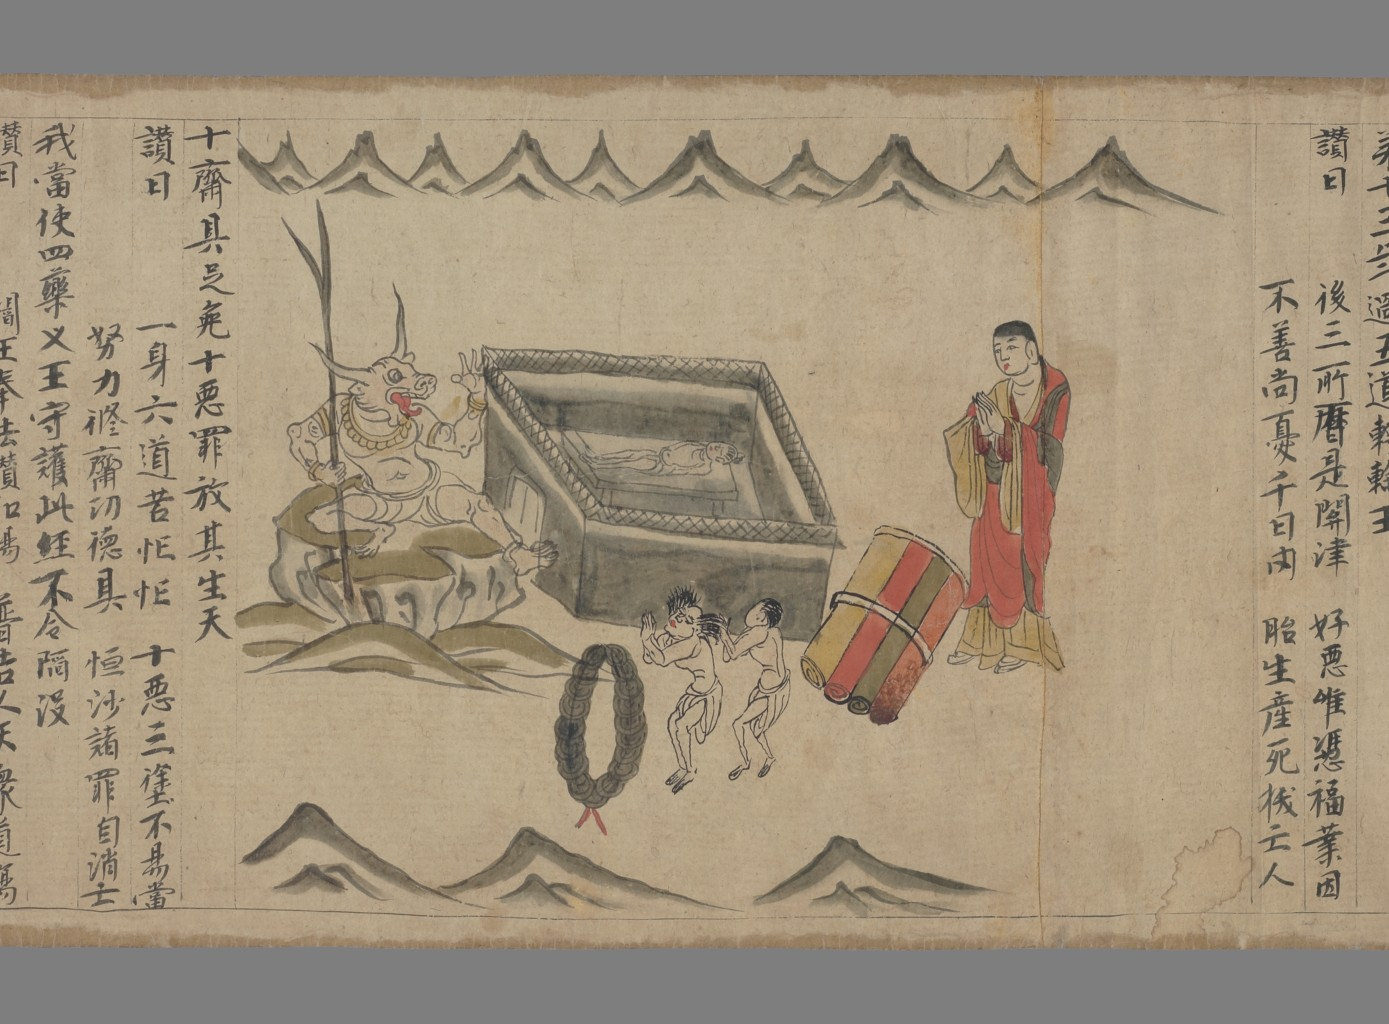 第十三年過五道轉輪王
讚曰
後三所曆是関津　好惡唯憑福業因
不善尚憂千日内　胎生産死拔亡人
十齋具足免十惡罪放其生天
讚曰
一身六道苦忙忙　十惡三塗不易當
努力修齋功德具　恒沙諸罪自消亡
我當使四藥叉王守護此經不令陷没
讚曰
閻王奉法讚 　普告人天衆道